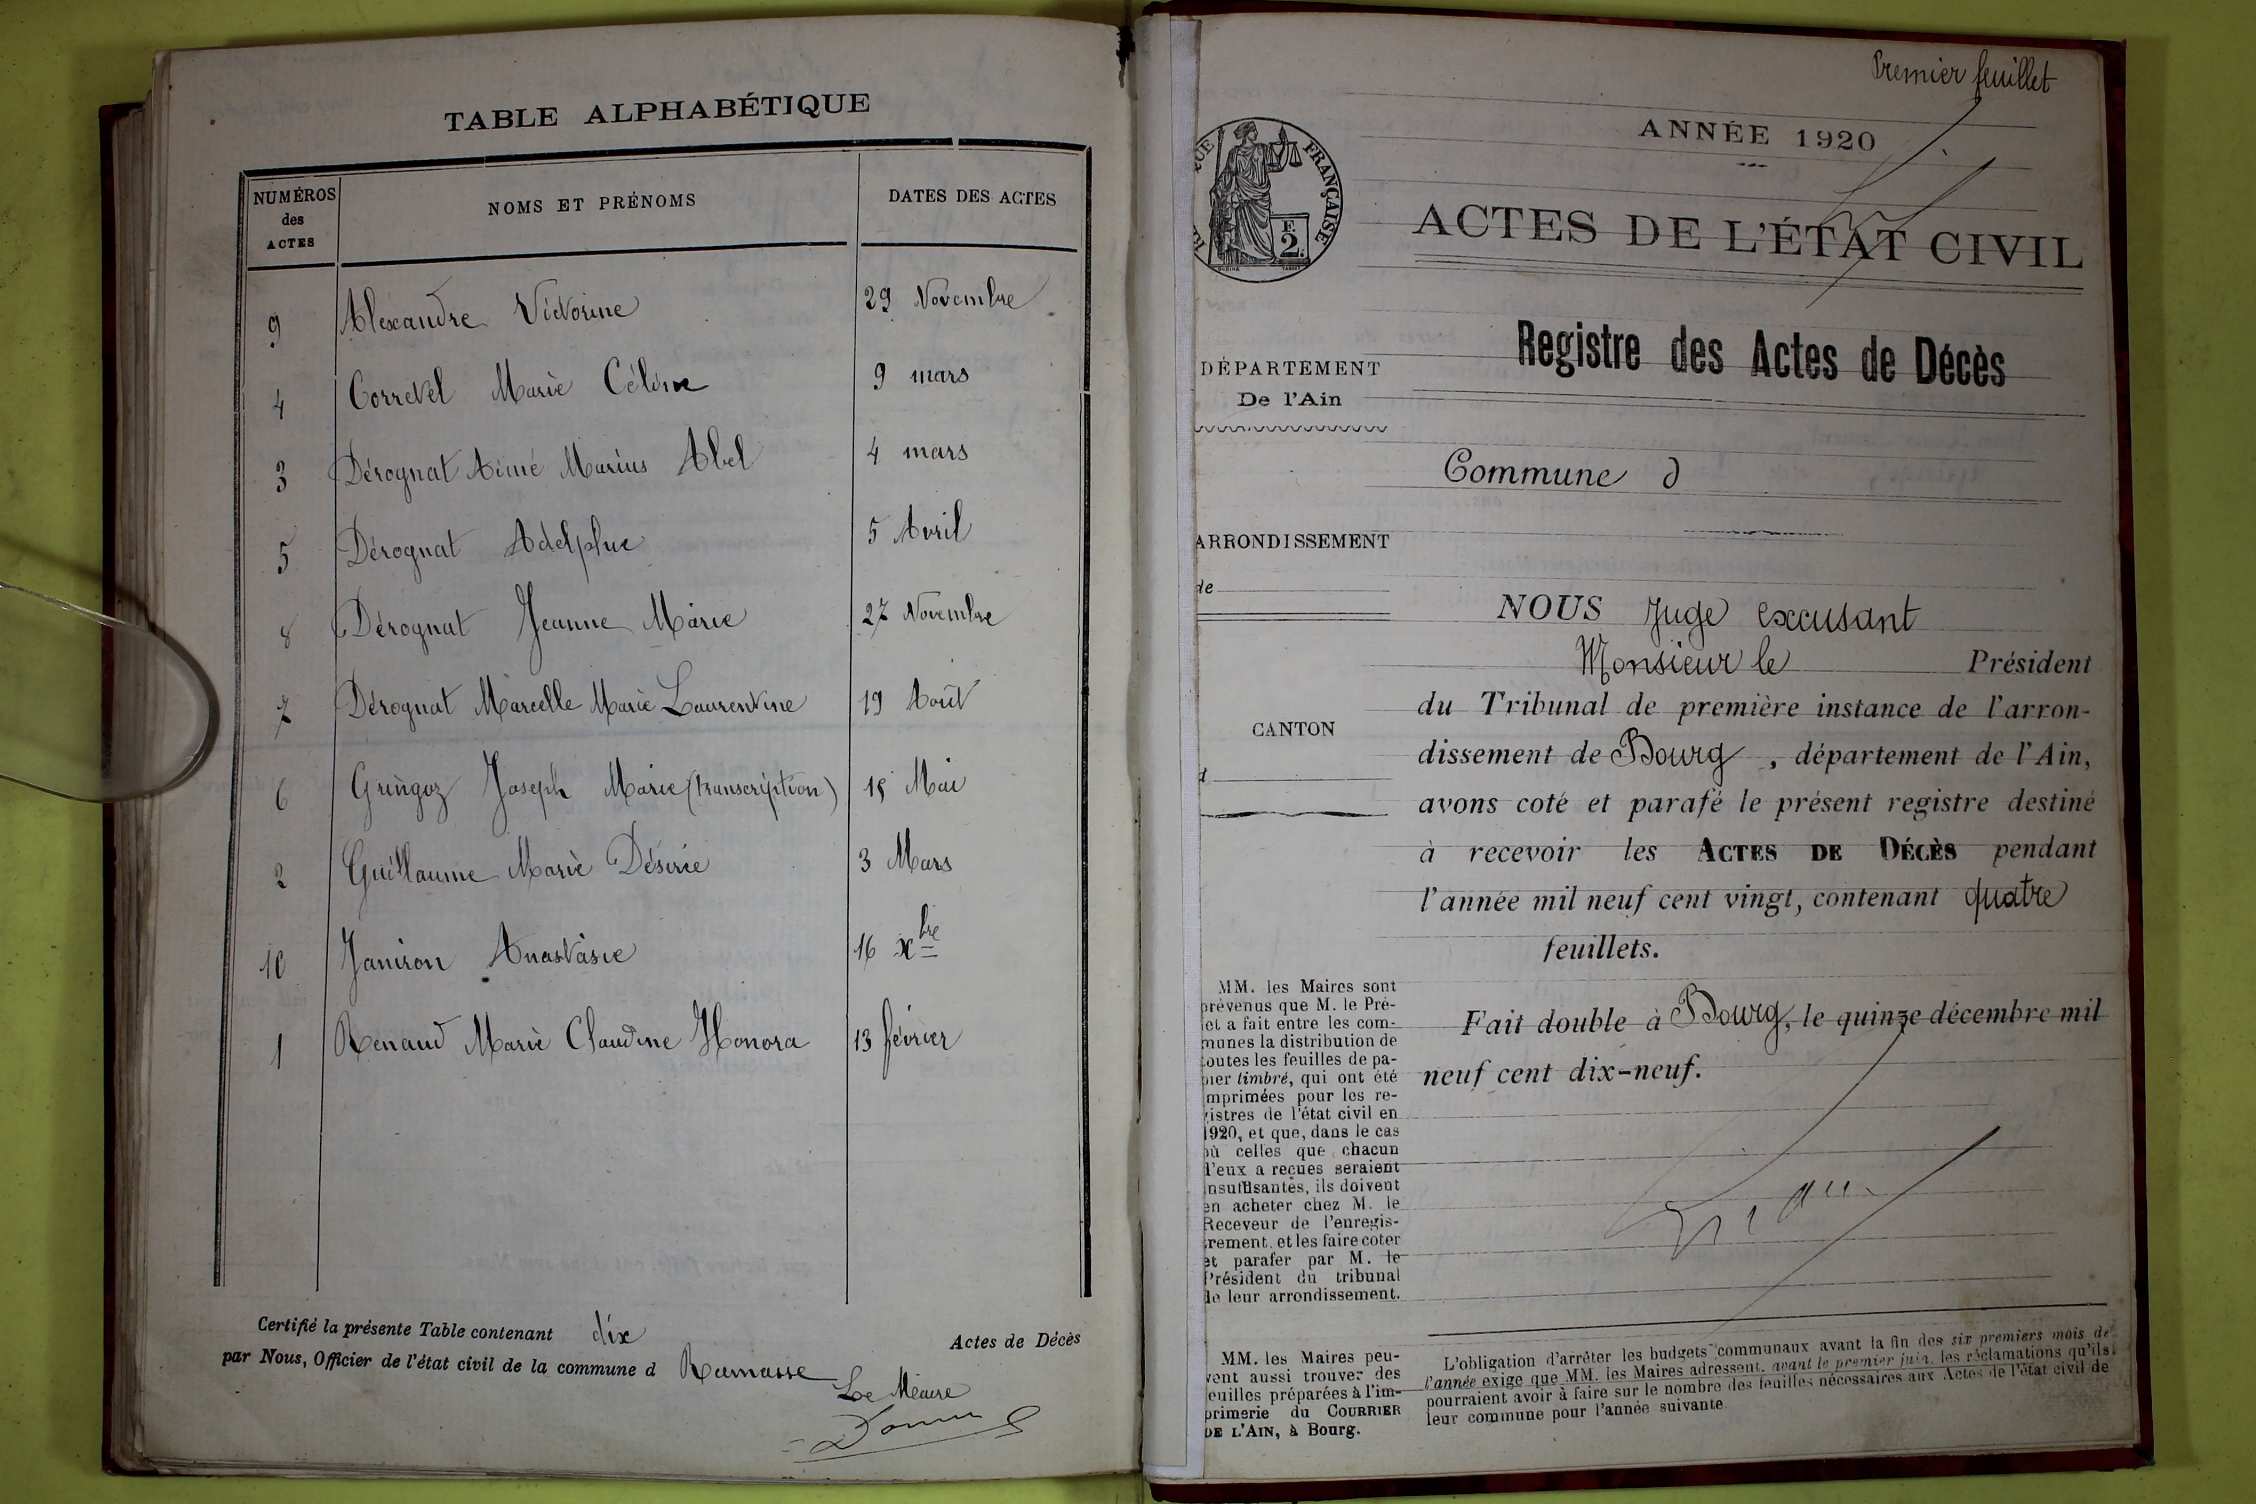 TABLE ALPHABÉTIQUE
NUMÉROS
des
ACTES
NOMS ET PRÉNOMS
DATES DES ACTES
9 Alexandre Victorine 29 Novembre
4 Correvel Marie Céline 9 mars
3 Dérognat Aimé Marius Abel 4 mars
5 Dérognat Adelphe 5 Avril
8 Dérognat Jeanne Marie 27 Novembre
7 Dérognat Marcelle Marie Laurentine 19 Août
6 Gringoz Joseph Marie (transcription) 15 Mai
2 Guillaume Marie Désirée 3 Mars
10 Janiron Anastasie 16 xbre
1 Renaud Marie Claudine Honora 13 février
Certifié la présente Table contenant dix Actes de Décès
par Nous, Officier de l'état civil de la commune d Ramasse
Le Maire
Premier feuillet
ANNÉE 1920
FRANÇAISE
F
2
ACTES DE L'ÉTAT CIVIL
Registre des Actes de Décès
DÉPARTEMENT
De l'Ain
Commune d
ARRONDISSEMENT
de
CANTON
d
NOUS Juge excusant
Monsieur le Président
du Tribunal de première instance de l'arron-
dissement de Bourg, département de l'Ain,
avons coté et parafé le présent registre destiné
à recevoir les ACTES DE DÉCÈS pendant
l'année mil neuf cent vingt, contenant quatre
feuillets.
Fait double à Bourg, le quinze décembre mil
neuf cent dix-neuf.
MM. les Maires sont
prévenus que M. le Pré-
fet a fait entre les com-
munes la distribution de
toutes les feuilles de pa-
pier timbré, qui ont été
imprimées pour les re-
gistres de l'état civil en
1920, et que, dans le cas
où celles que chacun
d'eux a reçues seraient
insuffisantes, ils doivent
en acheter chez M. le
Receveur de l'enregis-
trement, et les faire coter
et parafer par M. le
Président du tribunal
de leur arrondissement.
MM. les Maires peu-
vent aussi trouver des
feuilles préparées à l'im-
primerie du COURRIER
DE L'AIN, à Bourg.
L'obligation d'arrêter les budgets communaux avant la fin des six premiers mois de
l'année exige que MM. les Maires adressent, avant le premier juin, les réclamations qu'ils
pourraient avoir à faire sur le nombre des feuilles nécessaires aux Actes de l'état civil de
leur commune pour l'année suivante.